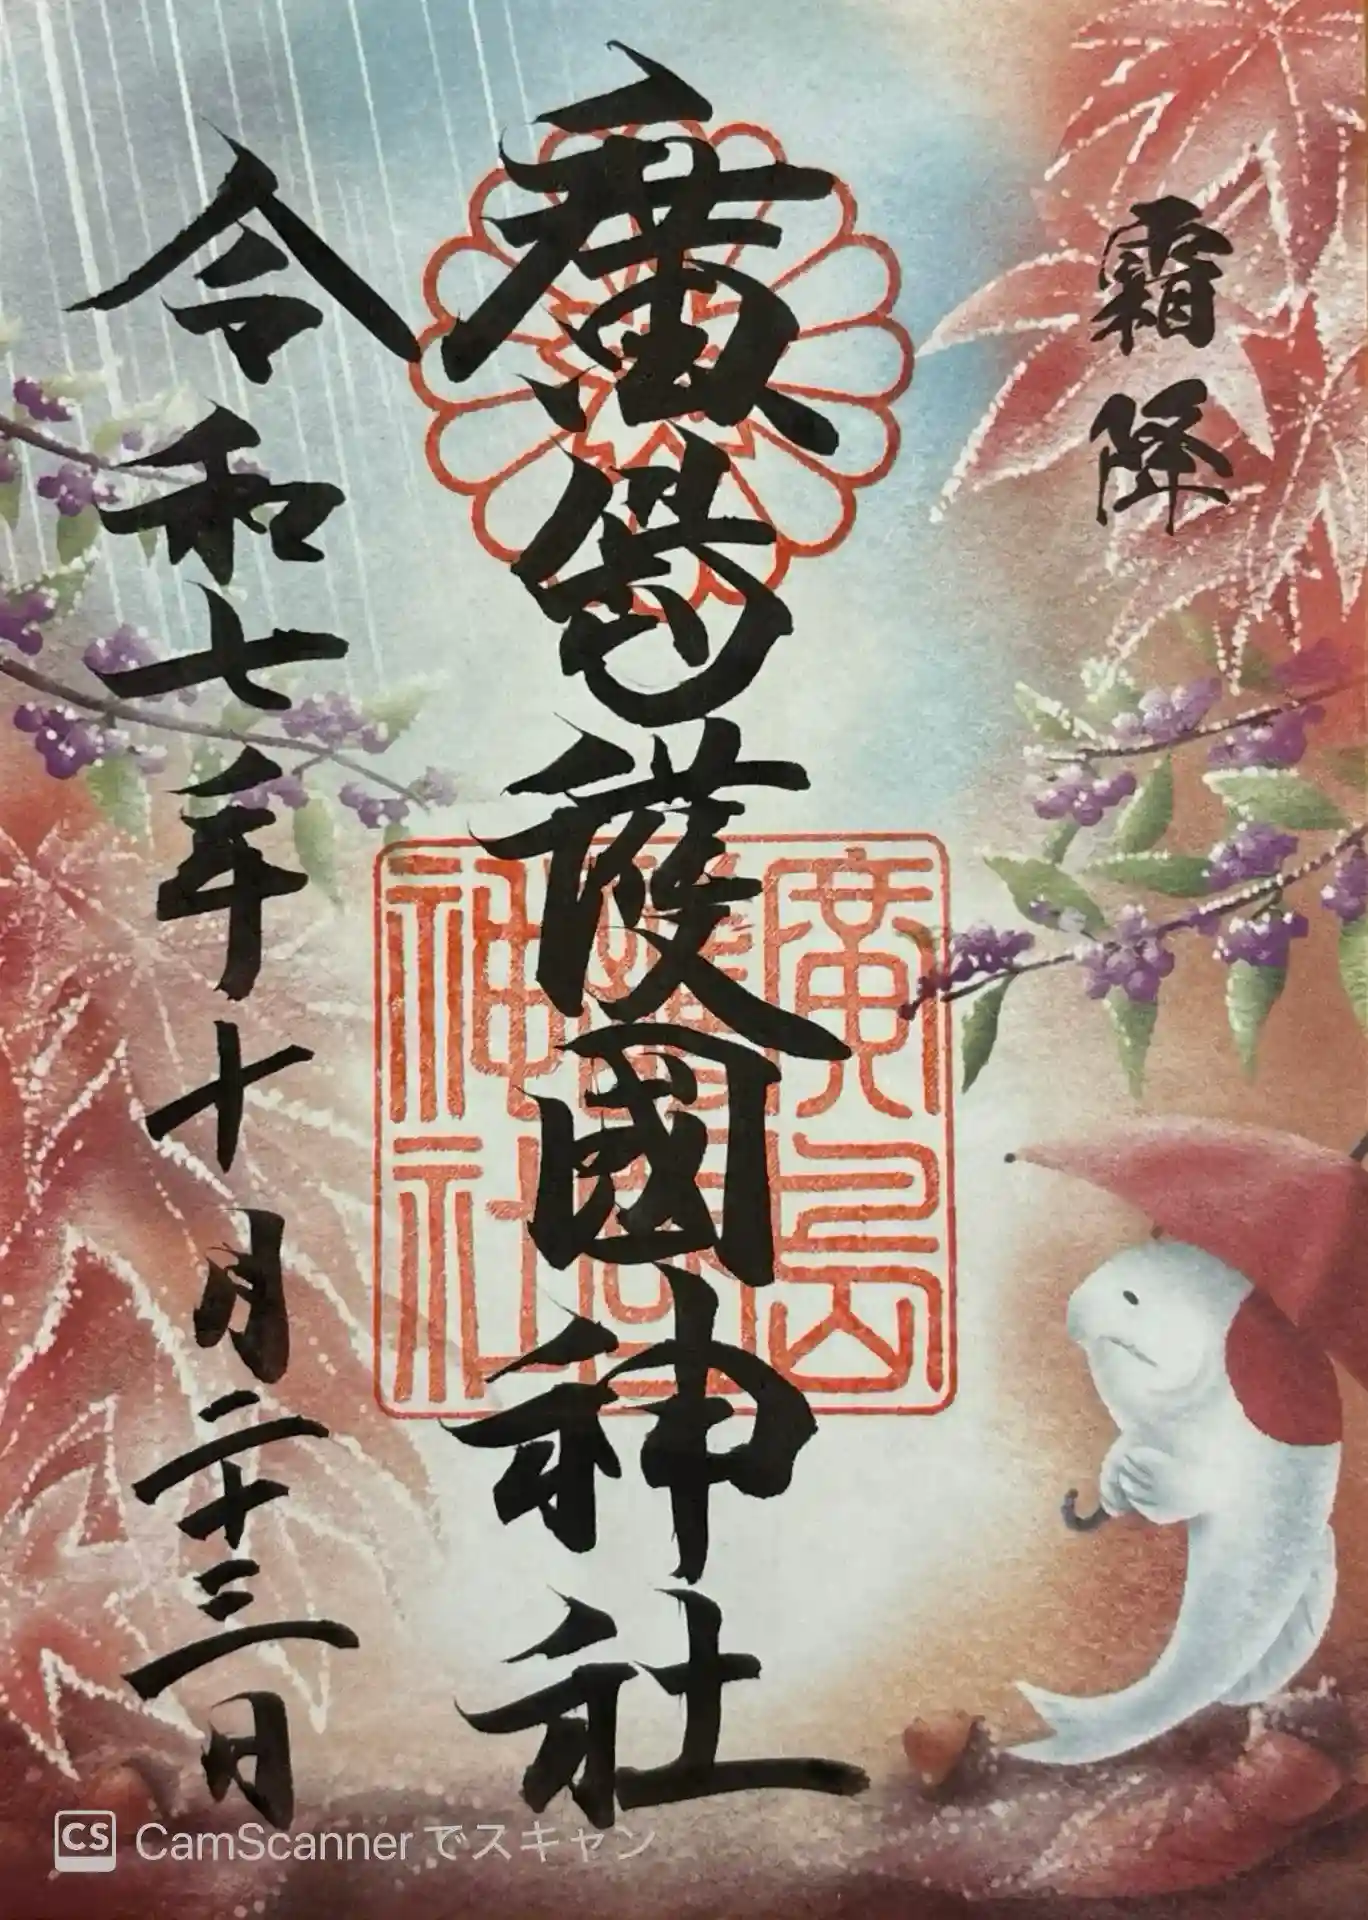 霜降
廣島護國神社
令和七年十月二十三日
廣島
護國
神社
CS CamScanner でスキャン